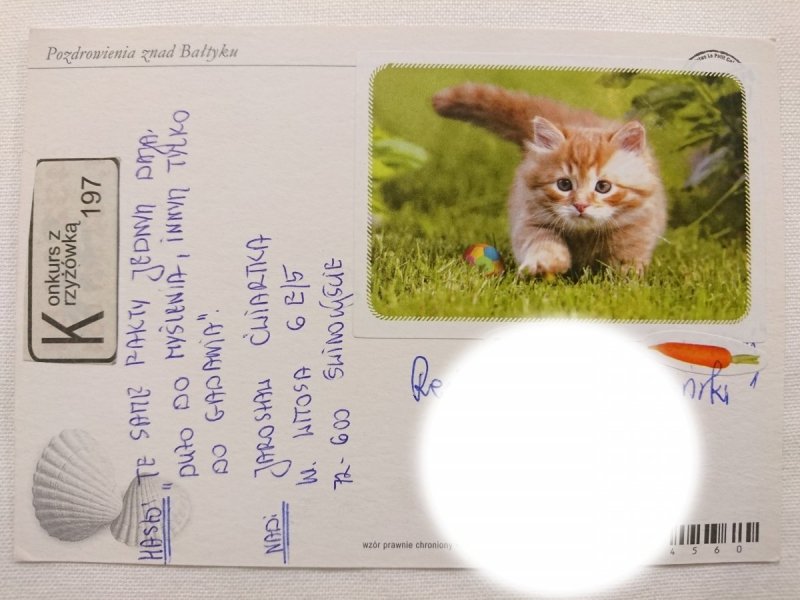 Pozdrowienia znad Bałtyku
Konkurs z
Krzyżówką
197
HASŁO: "TE SAME FAKTY JEDNYM DAJĄ
DUŻO DO MYŚLENIA, INNYM TYLKO
DO GADANIA".
NAD: JAROSŁAW ĆWIARTKA
W. WITOSA 6 E/5
72-600 ŚWINOUJŚCIE
wzór prawnie chroniony
4560